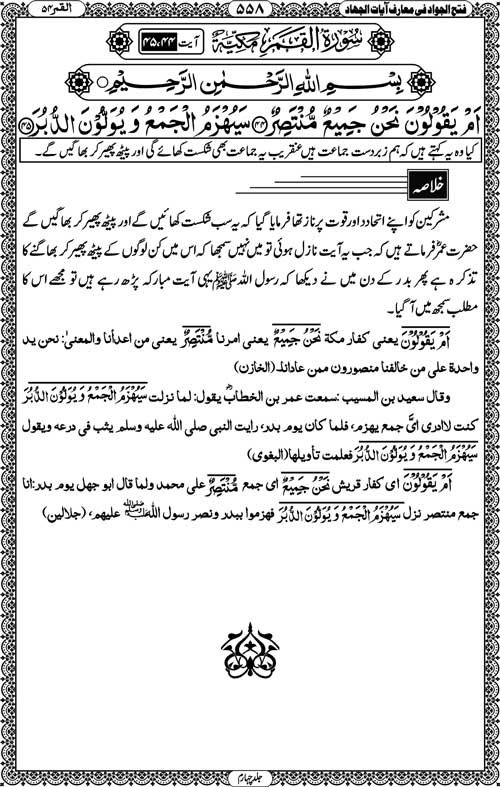 القمر ۵۴ ۵۵۸ فتح الجواد فی معارف آیات الجهاد
سُوْرَةُ الْقَمَرِ مَكِّيَّةٌ آیت ۴۵،۴۴
بِسْمِ اللهِ الرَّحْمٰنِ الرَّحِيْمِ
اَمْ يَقُوْلُوْنَ نَحْنُ جَمِيْعٌ مُّنْتَصِرٌ ﴿۴۴﴾ سَيُهْزَمُ الْجَمْعُ وَ يُوَلُّوْنَ الدُّبُرَ ﴿۴۵﴾
کیا وہ یہ کہتے ہیں کہ ہم زبردست جماعت ہیں عنقریب یہ جماعت بھی شکست کھائے گی اور پیٹھ پھیر کر بھاگیں گے۔
خلاصہ
مشرکین کو اپنے اتحاد اور قوت پر ناز تھا فرمایا گیا کہ یہ سب شکست کھائیں گے اور پیٹھ پھیر کر بھاگیں گے
حضرت عمرؓ فرماتے ہیں کہ جب یہ آیت نازل ہوئی تو میں نہیں سمجھا کہ اس میں کن لوگوں کے پیٹھ پھیر کر بھاگنے کا
تذکرہ ہے پھر بدر کے دن میں نے دیکھا کہ رسول اللہ ﷺ یہی آیت مبارکہ پڑھ رہے ہیں تو مجھے اس کا
مطلب سمجھ میں آگیا۔
اَمْ يَقُوْلُوْنَ یعنی کفار مکة نَحْنُ جَمِيْعٌ یعنی امرنا مُّنْتَصِرٌ یعنی من اعدأنا والمعنیٰ: نحن ید
واحدة علی من خالفنا منصورون ممن عادانا۔ (الخازن)
وقال سعيد بن المسيب: سمعت عمر بن الخطابؓ يقول: لما نزلت سَيُهْزَمُ الْجَمْعُ وَ يُوَلُّوْنَ الدُّبُرَ
کنت لا ادری ایَّ جمع یهزم، فلما کان یوم بدر، رایت النبی صلی الله علیه وسلم یثب فی درعه ویقول
سَيُهْزَمُ الْجَمْعُ وَ يُوَلُّوْنَ الدُّبُرَ فعلمت تأویلها (البغوی)
اَمْ يَقُوْلُوْنَ ای کفار قریش نَحْنُ جَمِيْعٌ ای جمع مُّنْتَصِرٌ علی محمد ولما قال ابو جهل یوم بدر: انا
جمع منتصر نزل سَيُهْزَمُ الْجَمْعُ وَ يُوَلُّوْنَ الدُّبُرَ فهزموا ببدر ونصر رسول الله ﷺ علیهم، (جلالین)
جلد چہارم